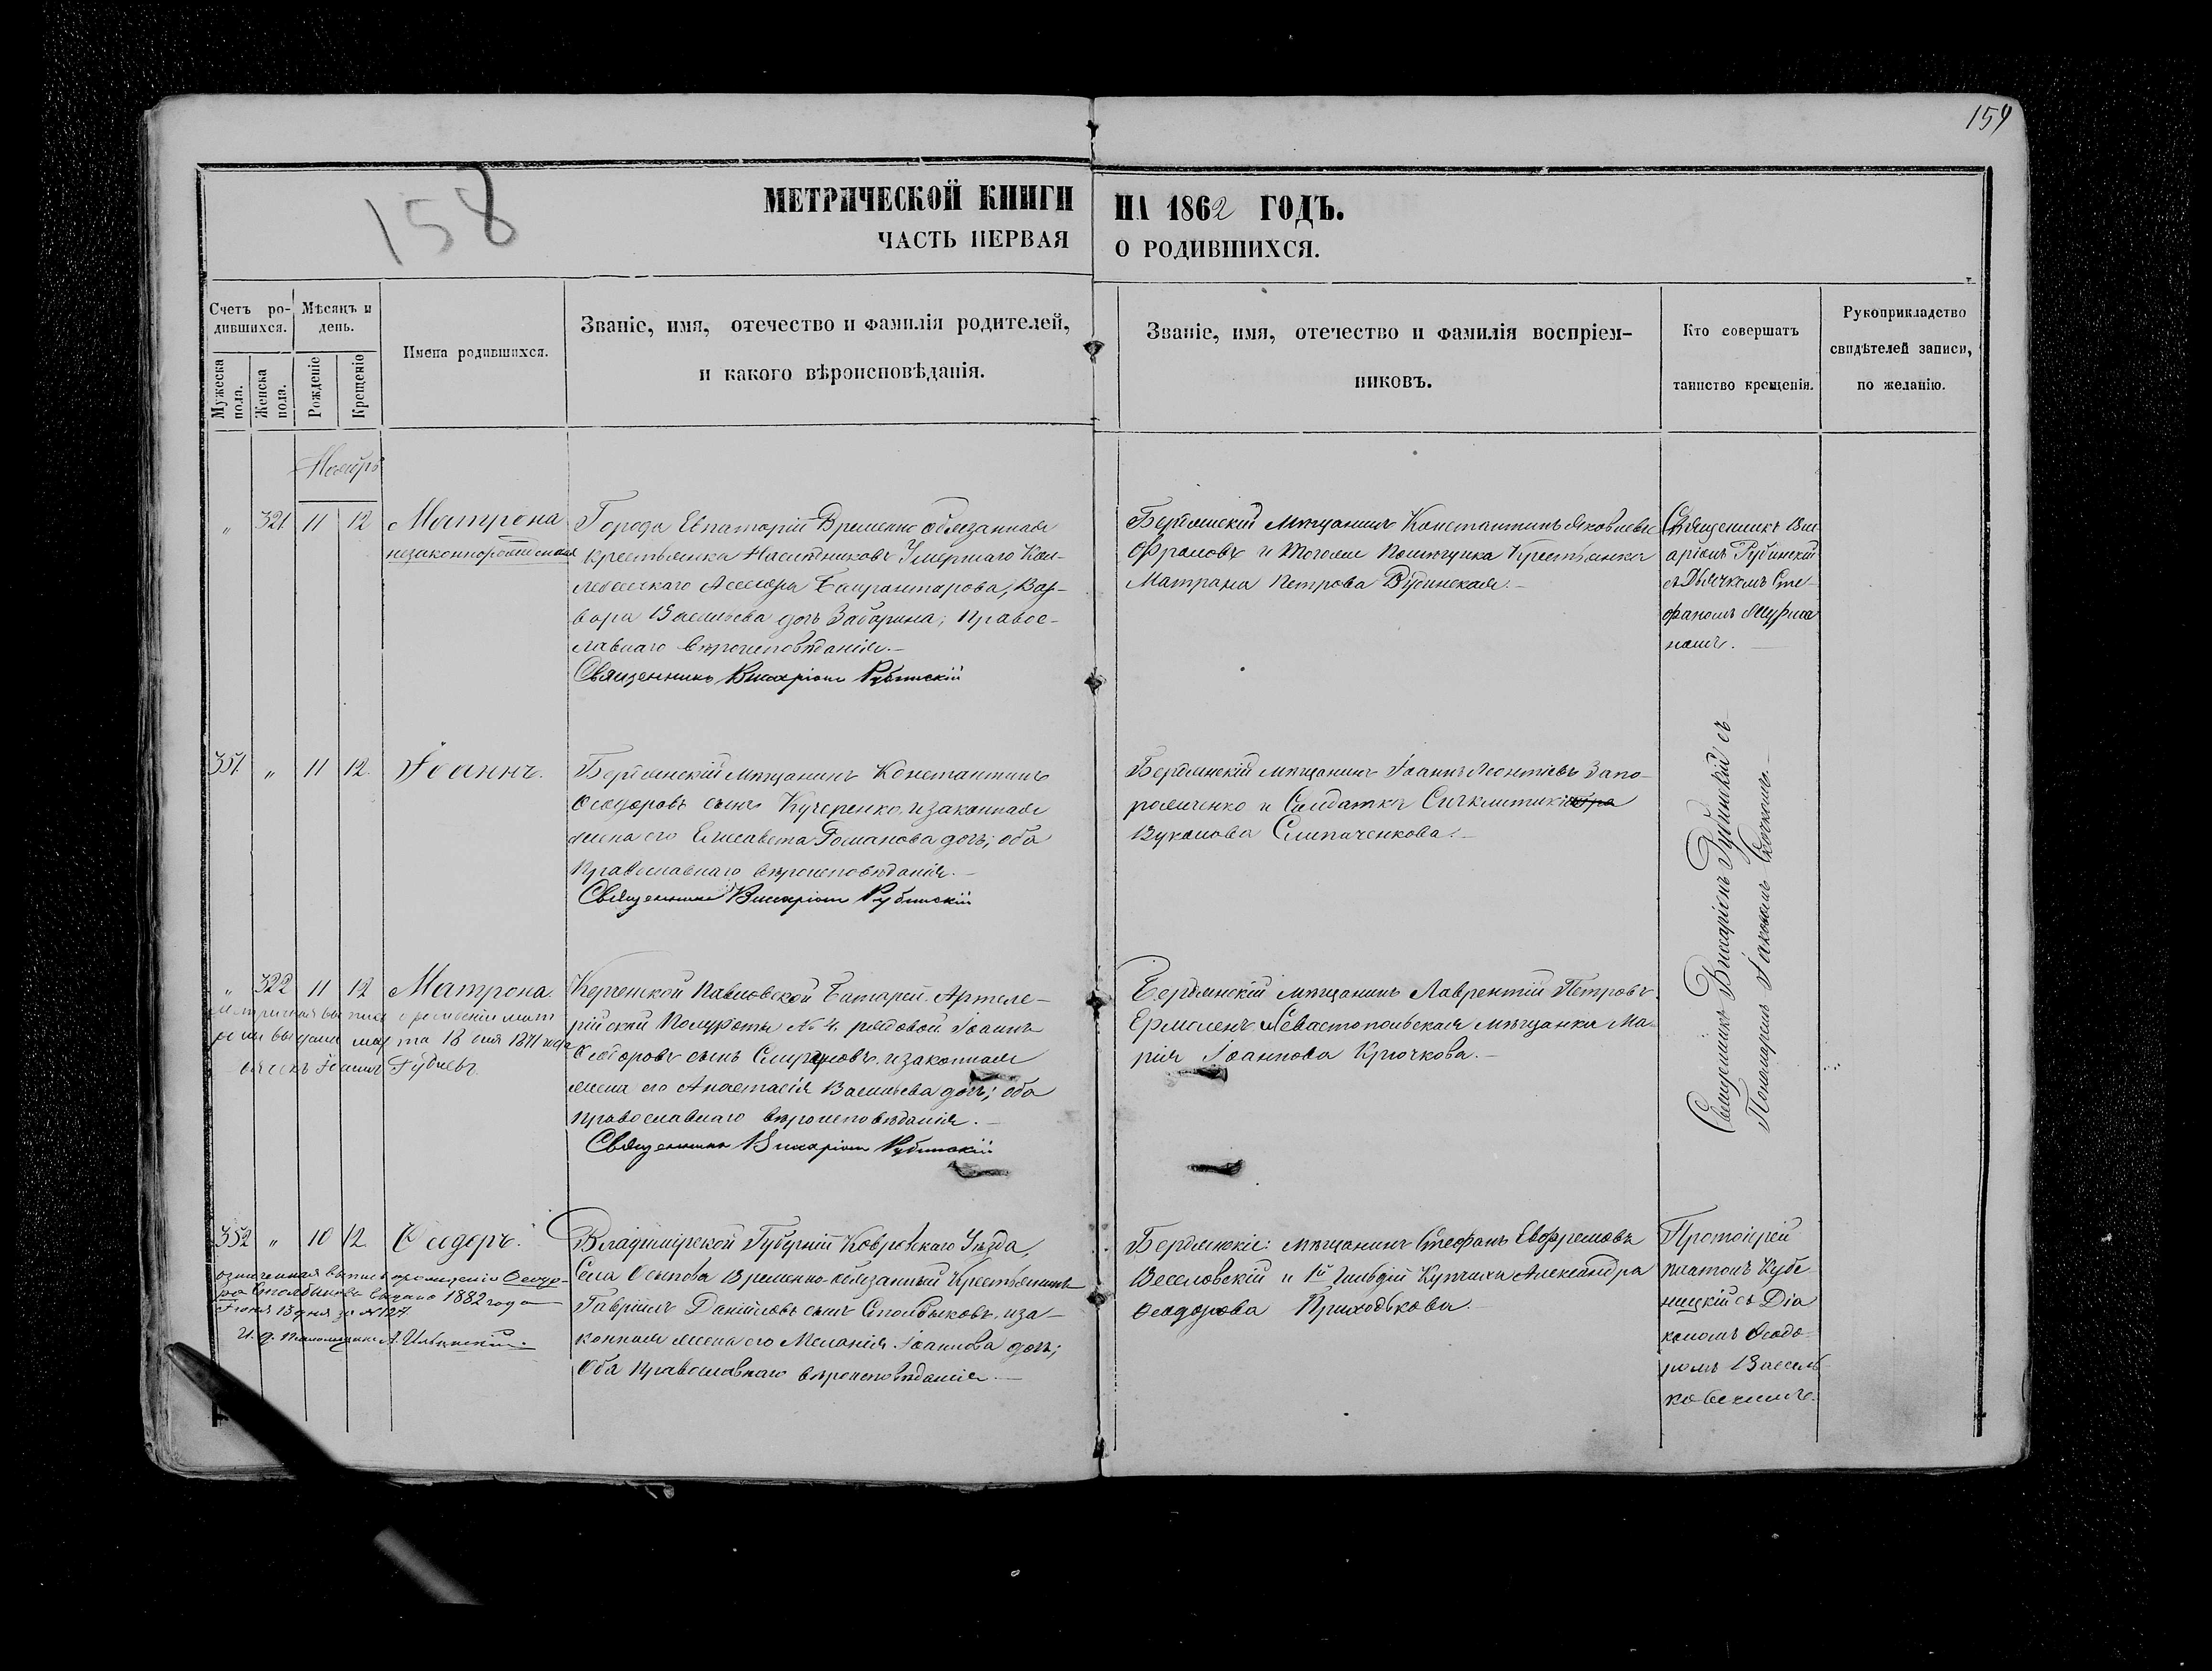 159
158
МЕТРИЧЕСКОЙ КНИГИ НА 1862 ГОДЪ.
ЧАСТЬ ПЕРВАЯ О РОДИВШИХСЯ.
Счетъ ро-
дившихся.
Мужеска пола.
Женска пола.
Мѣсяцъ и
день.
Рожденіе
Крещеніе
Имена родившихся.
Званіе, имя, отечество и фамилія родителей,
и какого вѣроисповѣданія.
Званіе, имя, отечество и фамилія воспріем-
никовъ.
Кто совершатъ
таинство крещенія.
Рукоприкладство
свидѣтелей записи,
по желанію.
Ноябрь
" 321 11 12 Матрона
незаконнорожденная
Города Евпаторіи Временно обязанная
крестьянка Наслѣдниковъ Умершаго Кол-
лежскаго Асессора Вар-
вара Васильева дочь Забарина; Правос-
лавнаго вѣроисповѣданія.—
Священникъ Виссаріонъ Рубинскій
Бердянскій Мѣщанинъ Константинъ Яковлевъ
и Тогоже Помѣщика Крестьянка
Матрона Петрова
Священникъ Висс
аріонъ Рубинскій
съ Дьячкомъ Сте-
фаномъ
351 " 11 12 Іоаннъ.
Бердянскій мѣщанинъ Константинъ
Ѳеодоровъ сынъ Кучеренко, и законная
жена его Елисавета Романова дочь; оба
Православнаго вѣроисповѣданія.—
Священникъ Виссаріонъ Рубинскій
Бердянскій мѣщанинъ Іоаннъ Леонтіевъ Запо-
рожченко и Солдатка
Слипаченкова.—
Священникъ Виссаріонъ Рубинскій съ
Пономаремъ Іаковомъ
" 322 11 12 Матрона.
Метричная выпись о рожденіи Мат
роны выдана марта 18 дня 1871 года
Іоаннъ
Керченской Павловской Батареи Артиле-
рійской Полуроты № 4. рядовой Іоаннъ
Ѳеодоровъ сынъ и законная
жена его Анастасія Васильева дочь; оба
православнаго вѣроисповѣданія.—
Священникъ Виссаріонъ Рубинскій
Бердянскій мѣщанинъ Лаврентій Петровъ
Севастопольская мѣщанка Ма-
рія Іоаннова Крючкова.—
352 " 10 12 Ѳеодоръ.
означенная выпись о крещеніи Ѳеодо-
ра Столбикова выдана 1882 года
Іюня 13 дня за № 127
А. Ильинскій.
Владимірской Губерніи Ковровскаго Уѣзда,
Села Осипова Временно-обязанный Крестьянинъ
Гавріилъ Даніиловъ сынъ Столбиковъ, и за-
конная жена его Меланія Іоаннова дочь;
Оба Православнаго вѣроисповѣданія.—
Бердянскіе: мѣщанинъ Стефанъ Евфремовъ
Веселовскій и 1й Гильдіи Купчиха Александра
Ѳеодорова Приходькова.—
Протоіерей
Платонъ Кубе
ницкій съ Діа
кономъ Ѳеодо-
ромъ Василь
ковскимъ.